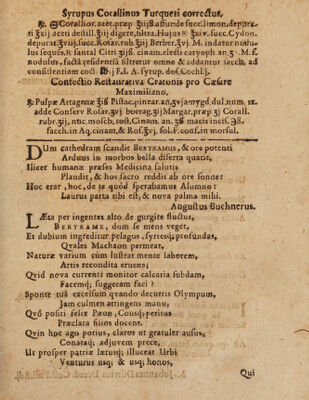 Syrupus Corallinus Turqueti correctus.
℞ Corallior. aeet. præp ʒiijß. affunde succ. limon. depurat.
ʒi ʒxij. aceti destill. ʒiij digere, filtra. Hujus ℞ ʒxiv. succ. Cydon.
depurat. ʒviij. succ. Rosar. rub. ʒiij Berber. ʒvj. M. indatur nodu-
lus seqvēs, ℞ santal Citri ʒijß. cinam. electi caryoph. an ʒ—ß M. f.
nodulus, facta residentiâ filtretur omne & addantur sacch. ad
consistentiam coct j F. L. A. syrup. dos. Cochl j.
Confectio Restaurativa Cratonis pro Cæsare
Maximiliano.
℞ Pulpæ Attagenæ ʒiß Pistac. pinear. an. ʒvj amygd. dul. num. ix.
adde Conserv Rosar. ʒvij. borrag. ʒiij Margar. præp ʒj Corall.
rubr. ʒij, nuc. mosch. tost. Cinam. an. ʒß macis incis. ℈s.
sacch. in Aq. cinam, & Ros. ʒvj. sol. F. conf. in morsul.
DUm cathedram scandis BERTRAMUS, & ore potenti
Arduus in morbos bella diserta quatit,
Hicer humanæ præses Medicina salutis
Plaudit, & hos sacro reddit ab ore sonos:
Hoc erat, hoc, de te quód sperabamus Alumno:
Laurus parta tibi est, & nova palma mihi.
Augustus Buchnerus.
LÆta per ingentes alto de gurgite fluctus,
BERTRAME, dum se mens veget,
Et dubium ingreditur pelagus, syrtesq; profundas,
Qvales Machaon permeat,
Naturæ varium cùm lustrat mente laborem,
Artis recondita eruens;
Qvid nova currenti monitor calcaria subdam,
Facemq; suggeram faci?
Sponte tuâ excelsum qvando decorris Olympum,
Jam culmen attingens manu,
Qvò positi felix Pæon, Cousq; penitus
Præclara filios docent.
Qvin hoc ago potius, claros ut gratuler ausus,
Conataq; adjuvem prece,
Ut prosper patriæ lætusq; illuceat Urbi
Venturus usq; & usq; honos,
Qui